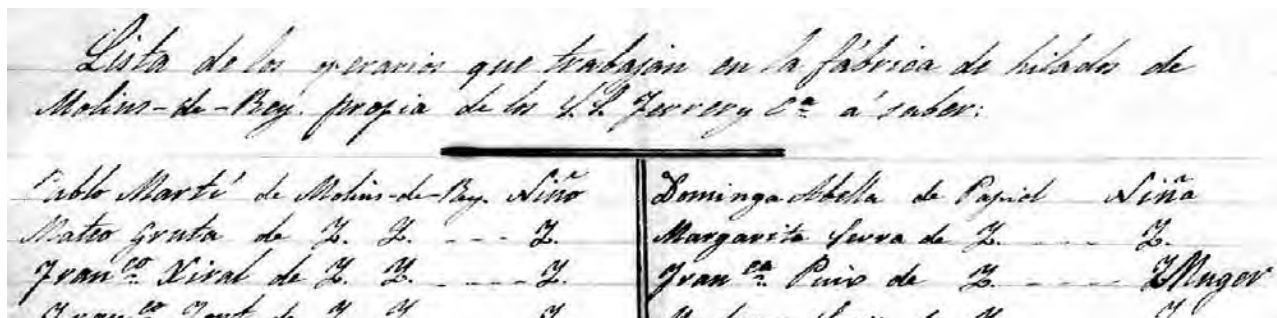 Lista de los operarios que trabajan en la fábrica de hilados de
Molins-de-Rey. propia de los S.S. Ferrer y Cª á saber:
Pablo Martí de Molins-de-Rey. Niño
Mateo Gruta de I. I. - - - I.
Franco Niral de I. I. - - - - I.
Dominga Abella de Papiol Niña
Margarita Serra de I. - - - - I.
Franca Puig de I. - - - - - Muger